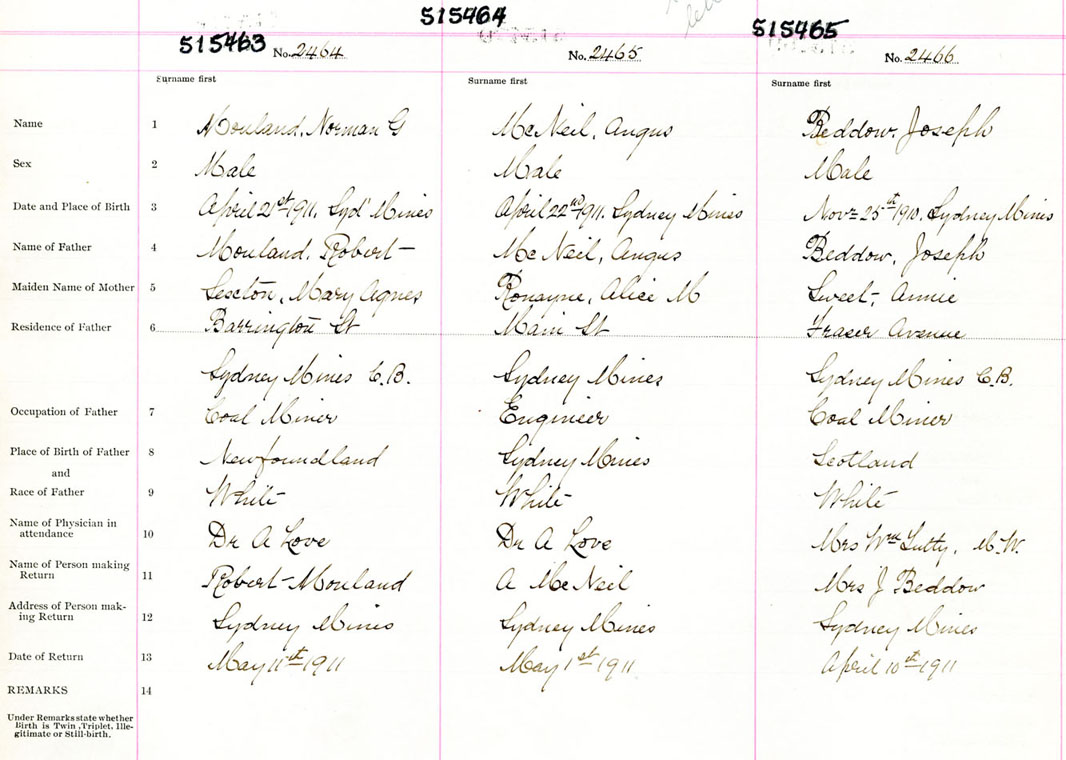 515463 515464 515465
No. 2464 No. 2465 No. 2466
Surname first Surname first Surname first
Name 1 Mouland, Norman G McNeil, Angus Beddow, Joseph
Sex 2 Male Male Male
Date and Place of Birth 3 April 21st 1911. Syd' Mines April 22nd 1911. Sydney Mines Novr 25th 1910. Sydney Mines
Name of Father 4 Mouland, Robert McNeil, Angus Beddow, Joseph
Maiden Name of Mother 5 Mary Agnes Ronayne, Alice M Sweet, Annie
Residence of Father 6 Barrington St Main St Fraser Avenue
Sydney Mines C.B. Sydney Mines Sydney Mines C.B.
Occupation of Father 7 Coal Miner Engineer Coal Miner
Place of Birth of Father 8 Newfoundland Sydney Mines Scotland
and
Race of Father 9 White White White
Name of Physician in
attendance 10 Dr A Love Dr A Love Mrs Wm Lutty, M.W.
Name of Person making
Return 11 Robert Mouland A McNeil Mrs J Beddow
Address of Person mak-
ing Return 12 Sydney Mines Sydney Mines Sydney Mines
Date of Return 13 May 11th 1911 May 1st 1911 April 10th 1911
REMARKS 14
Under Remarks state whether
Birth is Twin, Triplet, Ille-
gitimate or Still-birth.